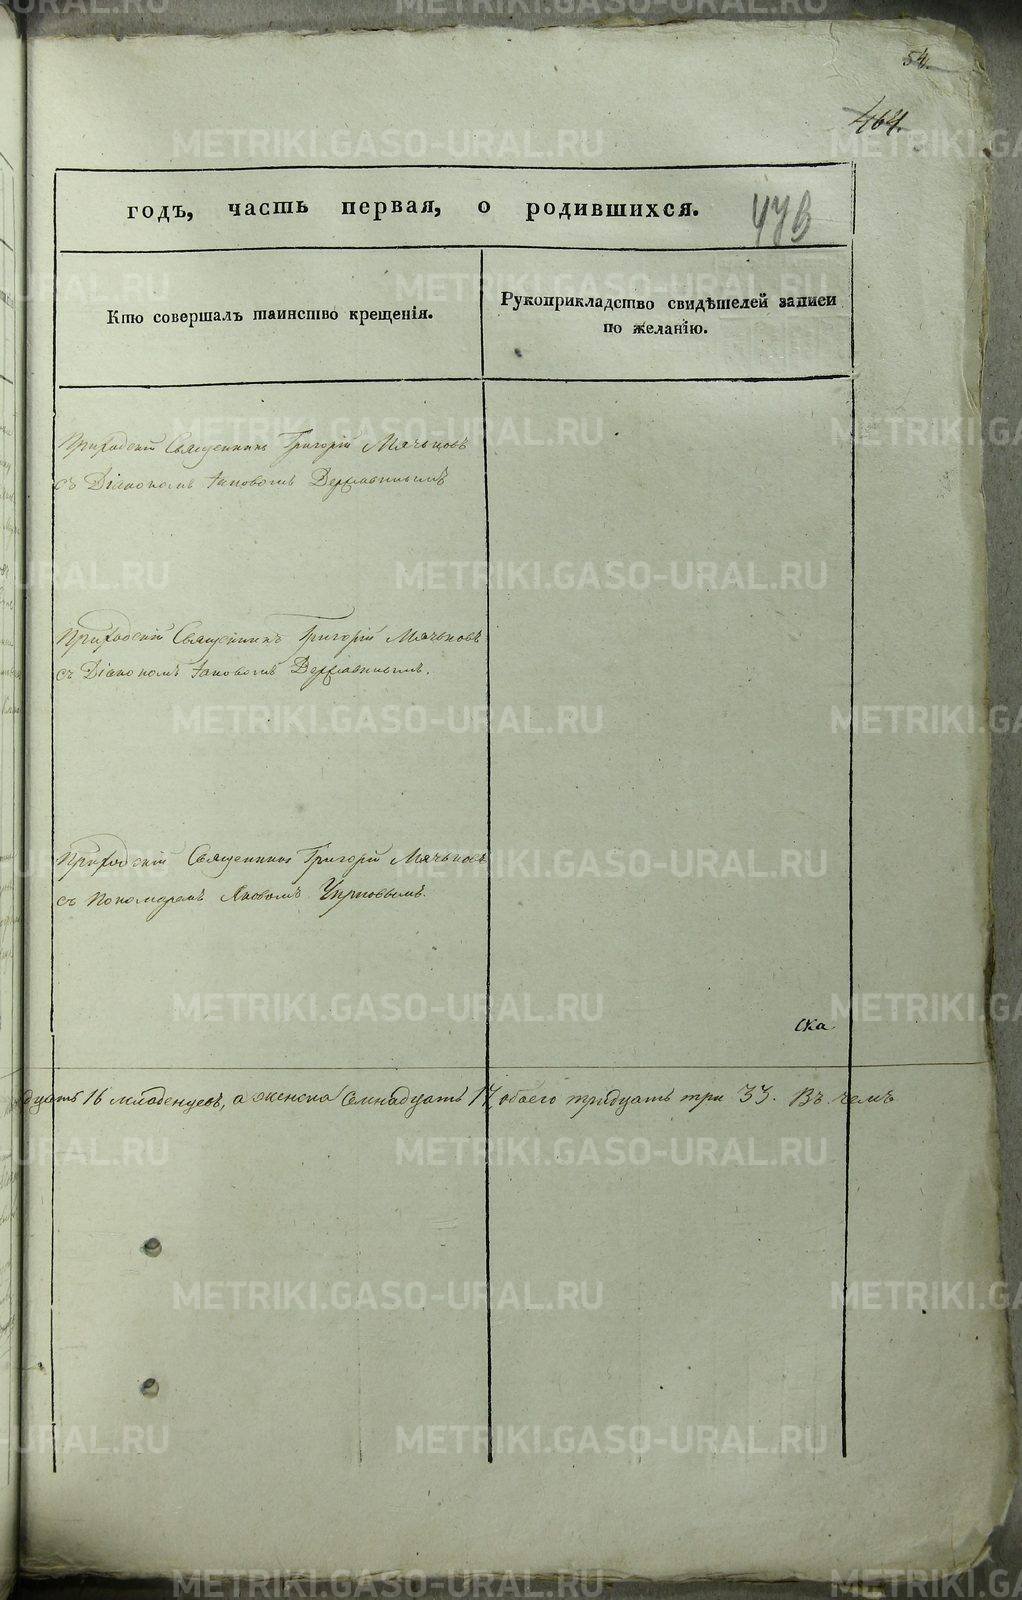 54.
464.
годъ, часть первая, о родившихся.
Кто совершалъ таинство крещенія.
Рукоприкладство свидѣтелей записи
по желанію.
Приходскій Священникъ Григорій Мячьковъ
съ Діакономъ Іаковомъ Державинымъ
Приходскій Священникъ Григорій Мячьковъ
съ Діакономъ Іаковомъ Державинымъ.
Приходскій Священникъ Григорій Мячьковъ
съ Пономаремъ Яковомъ
ска
дцать 16 младенцевъ, а женска семнадцать 17, обоего тридцать три 33. Въ чемъ
METRIKI.GASO-URAL.RU